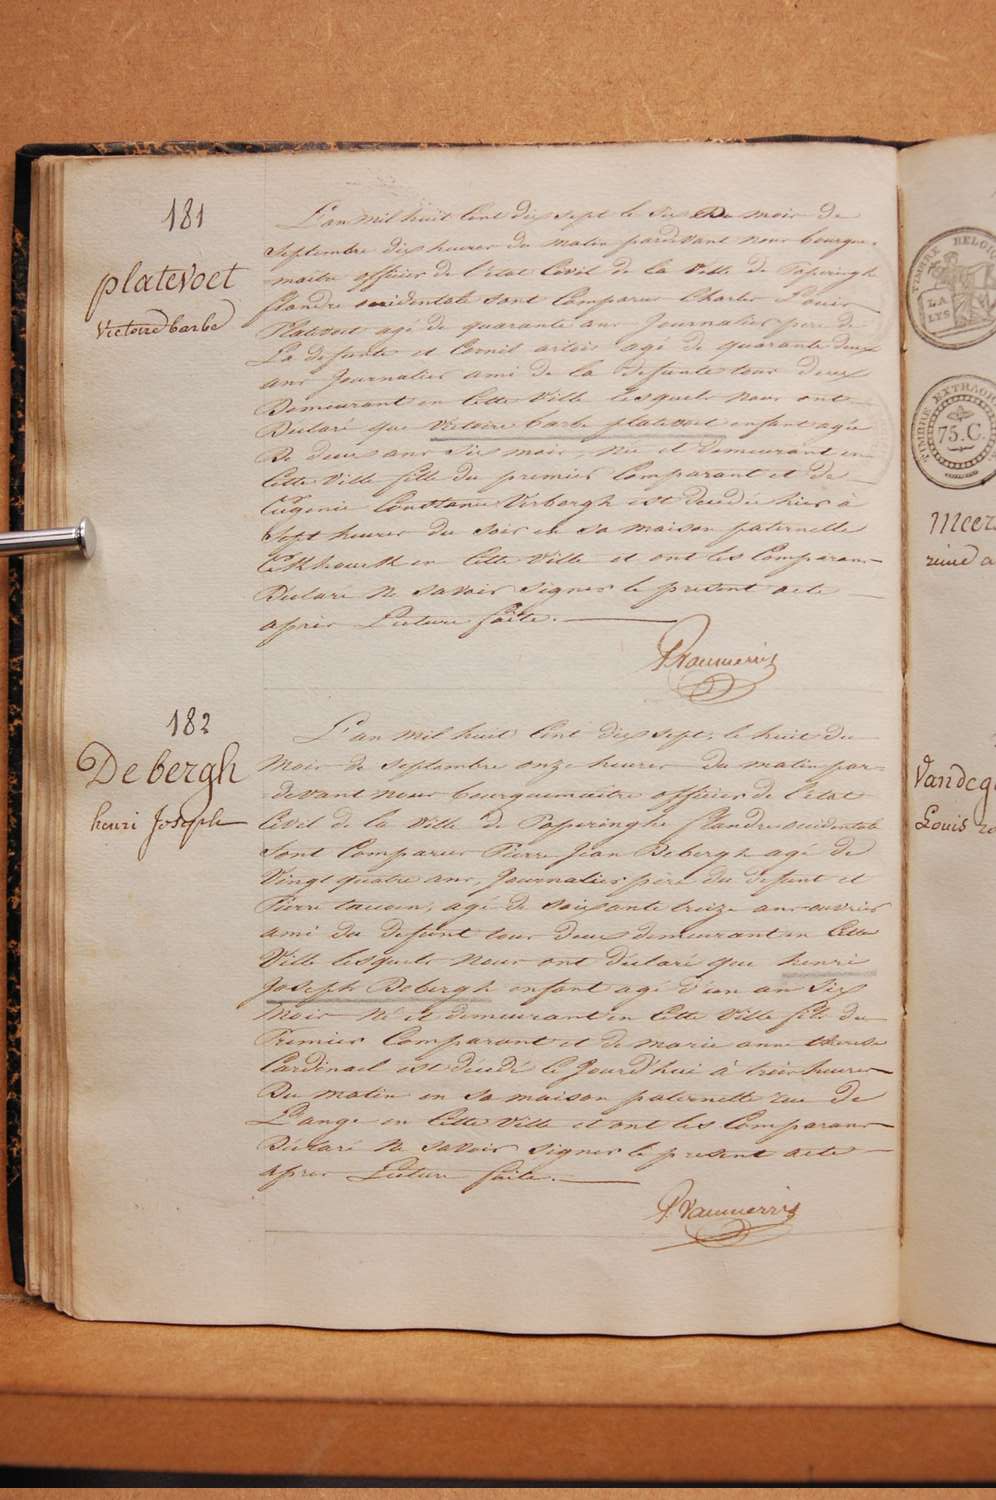 181
platevoet
Victoire barbe
L'an mil huit Cent dix sept le six Du mois de
Septembre dix heures du matin pardevant nous bourgue-
maitre officier de l'état Civil de la Ville de Poperinghe
flandre occidentale sont Comparus Charles Louis
Platevoet agé de quarante ans Journalier père de
La defunte et Cornil artois agé de quarante deux
ans Journalier ami de la defunte tous deux
Demeurant en Cette Ville lesquels nous ont
Declaré que Victoire barbe platevoet enfant agée
De deux ans six mois, née et Demeurant en
Cette Ville fille du premier Comparant et de
Eugenie Constance Verbergh est decedée hier à
sept heures du soir en sa maison paternelle
en Cette Ville et ont les Comparans
Declaré Ne savoir signer le present acte
après Lecture faite.
182
De bergh
henri Joseph
L'an mil huit Cent dix sept, le huit du
Mois de Septembre onze heures du matin par-
devant nous bourguemaitre officier de l'état
Civil de la Ville de Poperinghe flandre occidentale
sont Comparus Pierre Jean Debergh agé de
Vingt quatre ans, Journalier père du defunt et
Pierre agé de soixante treize ans ouvrier
ami du defunt tous deux demeurant en Cette
Ville lesquels Nous ont déclaré que henri
Joseph Debergh enfant agé d'un an Six
Mois né et demeurant en Cette Ville fils du
Premier Comparant et de marie anne therese
Cardinael est décédé le Jourd'hui à trois heures
Du matin en sa maison paternelle rue de
L'ange en Cette Ville et ont les Comparans
Déclaré Ne savoir signer le present acte
après Lecture faite.
TIMBRE BELGIQ
LA
LYS
TIMBRE EXTRAOR
75.C.
Meer
reine
Vandeg
Louis